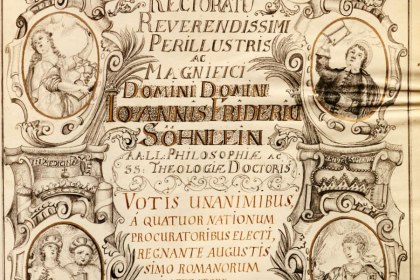 RECTORATU
REVERENDISSIMI
PERILLUSTRIS
AC
MAGNIFICI
DOMINI DOMINI
IOANNIS FRIDERICI
SÖHNLEIN
AA.LL. PHILOSOPHIÆ AC
SS: THEOLOGIÆ DOCTORIS
VOTIS UNANIMIBUS
A QUATUOR NATIONUM
PROCURATORIBUS ELECTI,
REGNANTE AUGUSTIS
SIMO ROMANORUM